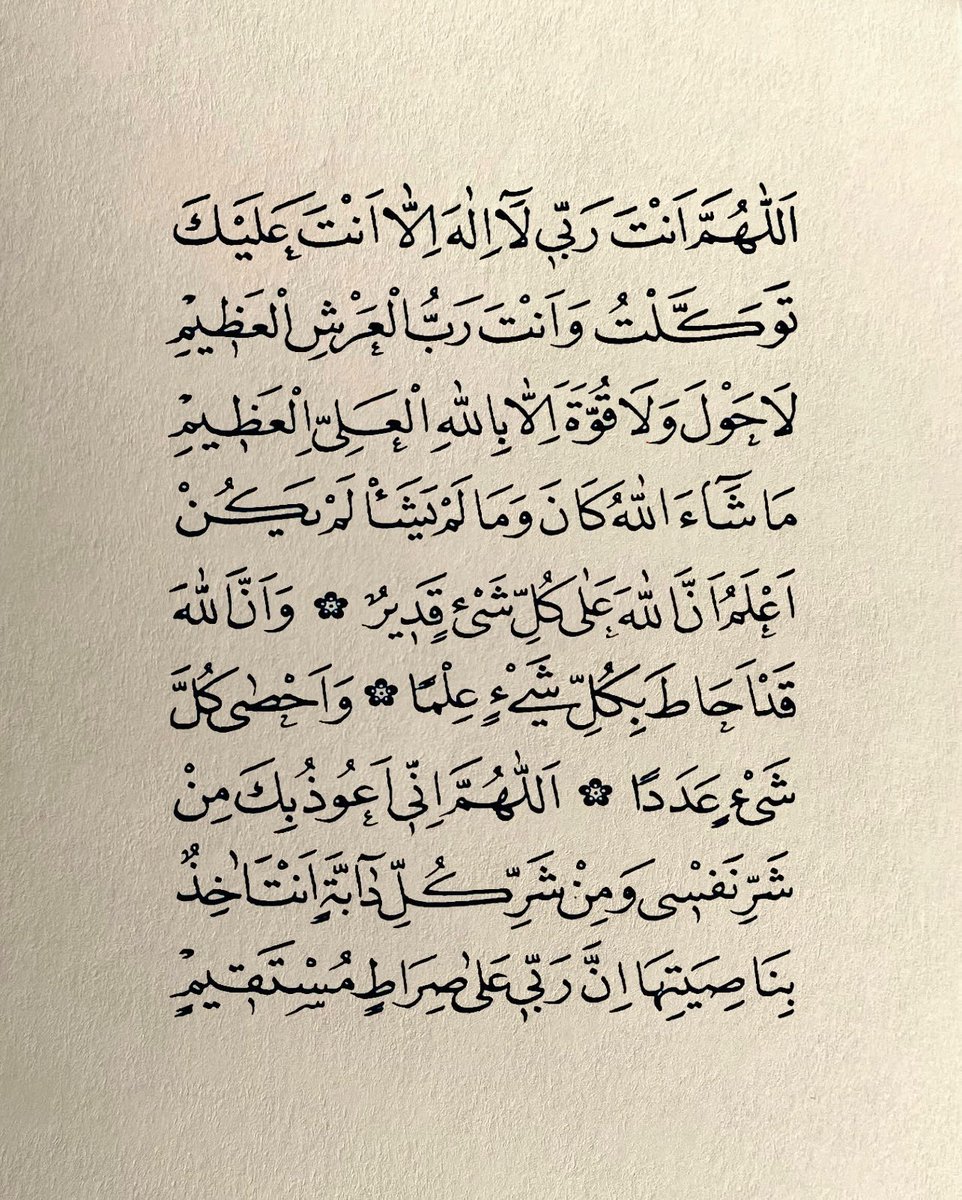 اَللّٰهُمَّ اَنْتَ رَبّٖي لَٓا اِلٰهَ اِلَّا اَنْتَ عَلَيْكَ
تَوَكَّلْتُ وَاَنْتَ رَبُّ الْعَرْشِ الْعَظٖيمِ
لَا حَوْلَ وَلَا قُوَّةَ اِلَّا بِاللّٰهِ الْعَلِيِّ الْعَظٖيمِ
مَا شَٓاءَ اللّٰهُ كَانَ وَمَا لَمْ يَشَأْ لَمْ يَكُنْ
اَعْلَمُ اَنَّ اللّٰهَ عَلٰى كُلِّ شَیْءٍ قَدٖيرٌ ❁ وَاَنَّ اللّٰهَ
قَدْ اَحَاطَ بِكُلِّ شَيْءٍ عِلْمًا ❁ وَاَحْصٰى كُلَّ
شَیْءٍ عَدَدًا ❁ اَللّٰهُمَّ اِنّٖي اَعُوذُ بِكَ مِنْ
شَرِّ نَفْسٖى وَمِنْ شَرِّ كُلِّ دَٓابَّةٍ اَنْتَ اٰخِذٌ
بِنَاصِيَتِهَا اِنَّ رَبّٖي عَلٰى صِرَاطٍ مُسْتَقٖيمٍ